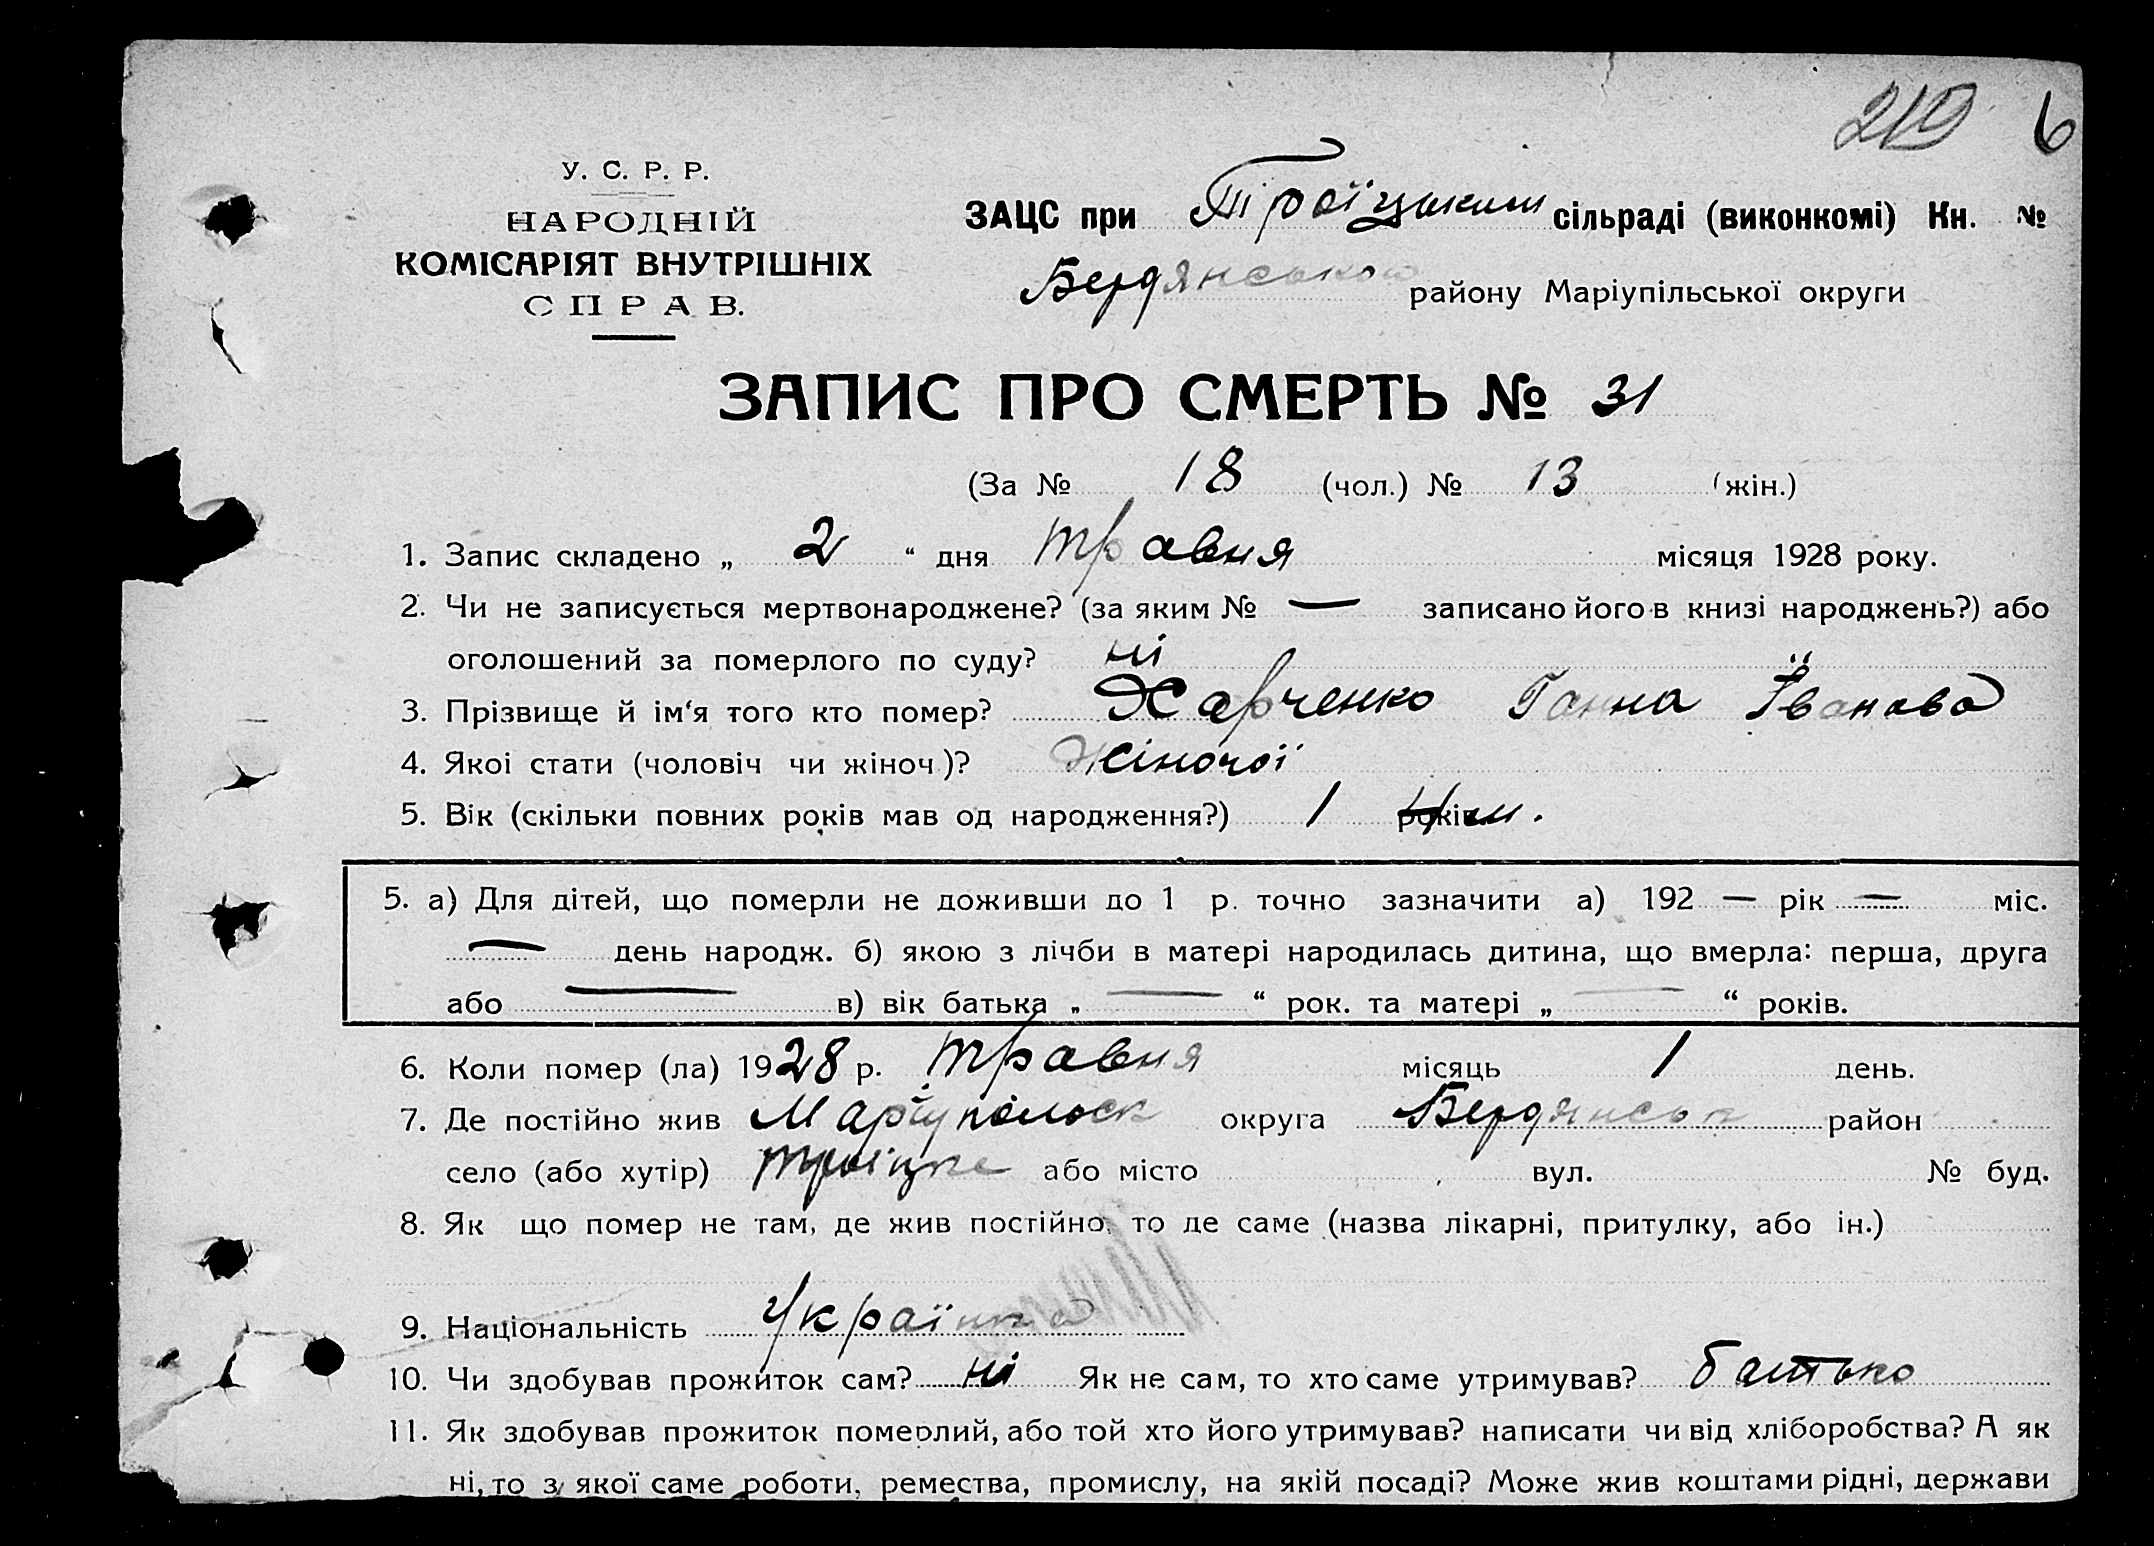 219 6
У. С. Р. Р.
НАРОДНІЙ
КОМІСАРІЯТ ВНУТРІШНІХ
СПРАВ.
ЗАЦС при Троїцькит сільраді (виконкомі) Кн. №
Бердянського району Маріупільської округи
ЗАПИС ПРО СМЕРТЬ № 31
(За № 18 (чол.) № 13 (жін.)
1. Запис складено „ 2 “ дня травня місяця 1928 року.
2. Чи не записується мертвонароджене? (за яким № — записано його в книзі народжень?) або
оголошений за померлого по суду? ні
3. Прізвище й ім'я того кто помер? Харченко Ганна Іванова
4. Якої стати (чоловіч чи жіноч)? Жіночої
5. Вік (скільки повних років мав од народження?) 1 років
5. а) Для дітей, що померли не доживши до 1 р. точно зазначити а) 192 — рік — міс.
— день народж. б) якою з лічби в матері народилась дитина, що вмерла: перша, друга
або — в) вік батька „ — “ рок. та матері „ — “ років.
6. Коли помер (ла) 1928 р. травня місяць 1 день.
7. Де постійно жив Маріупільськ округа Бердянськ район
село (або хутір) Троїцьке або місто вул. № буд.
8. Як що помер не там, де жив постійно, то де саме (назва лікарні, притулку, або ін.)
9. Національність Українка
10. Чи здобував прожиток сам? ні Як не сам, то хто саме утримував? батько
11. Як здобував прожиток померлий, або той хто його утримував? написати чи від хліборобства? А як
ні, то з якої саме роботи, ремества, промислу, на якій посаді? Може жив коштами рідні, держави